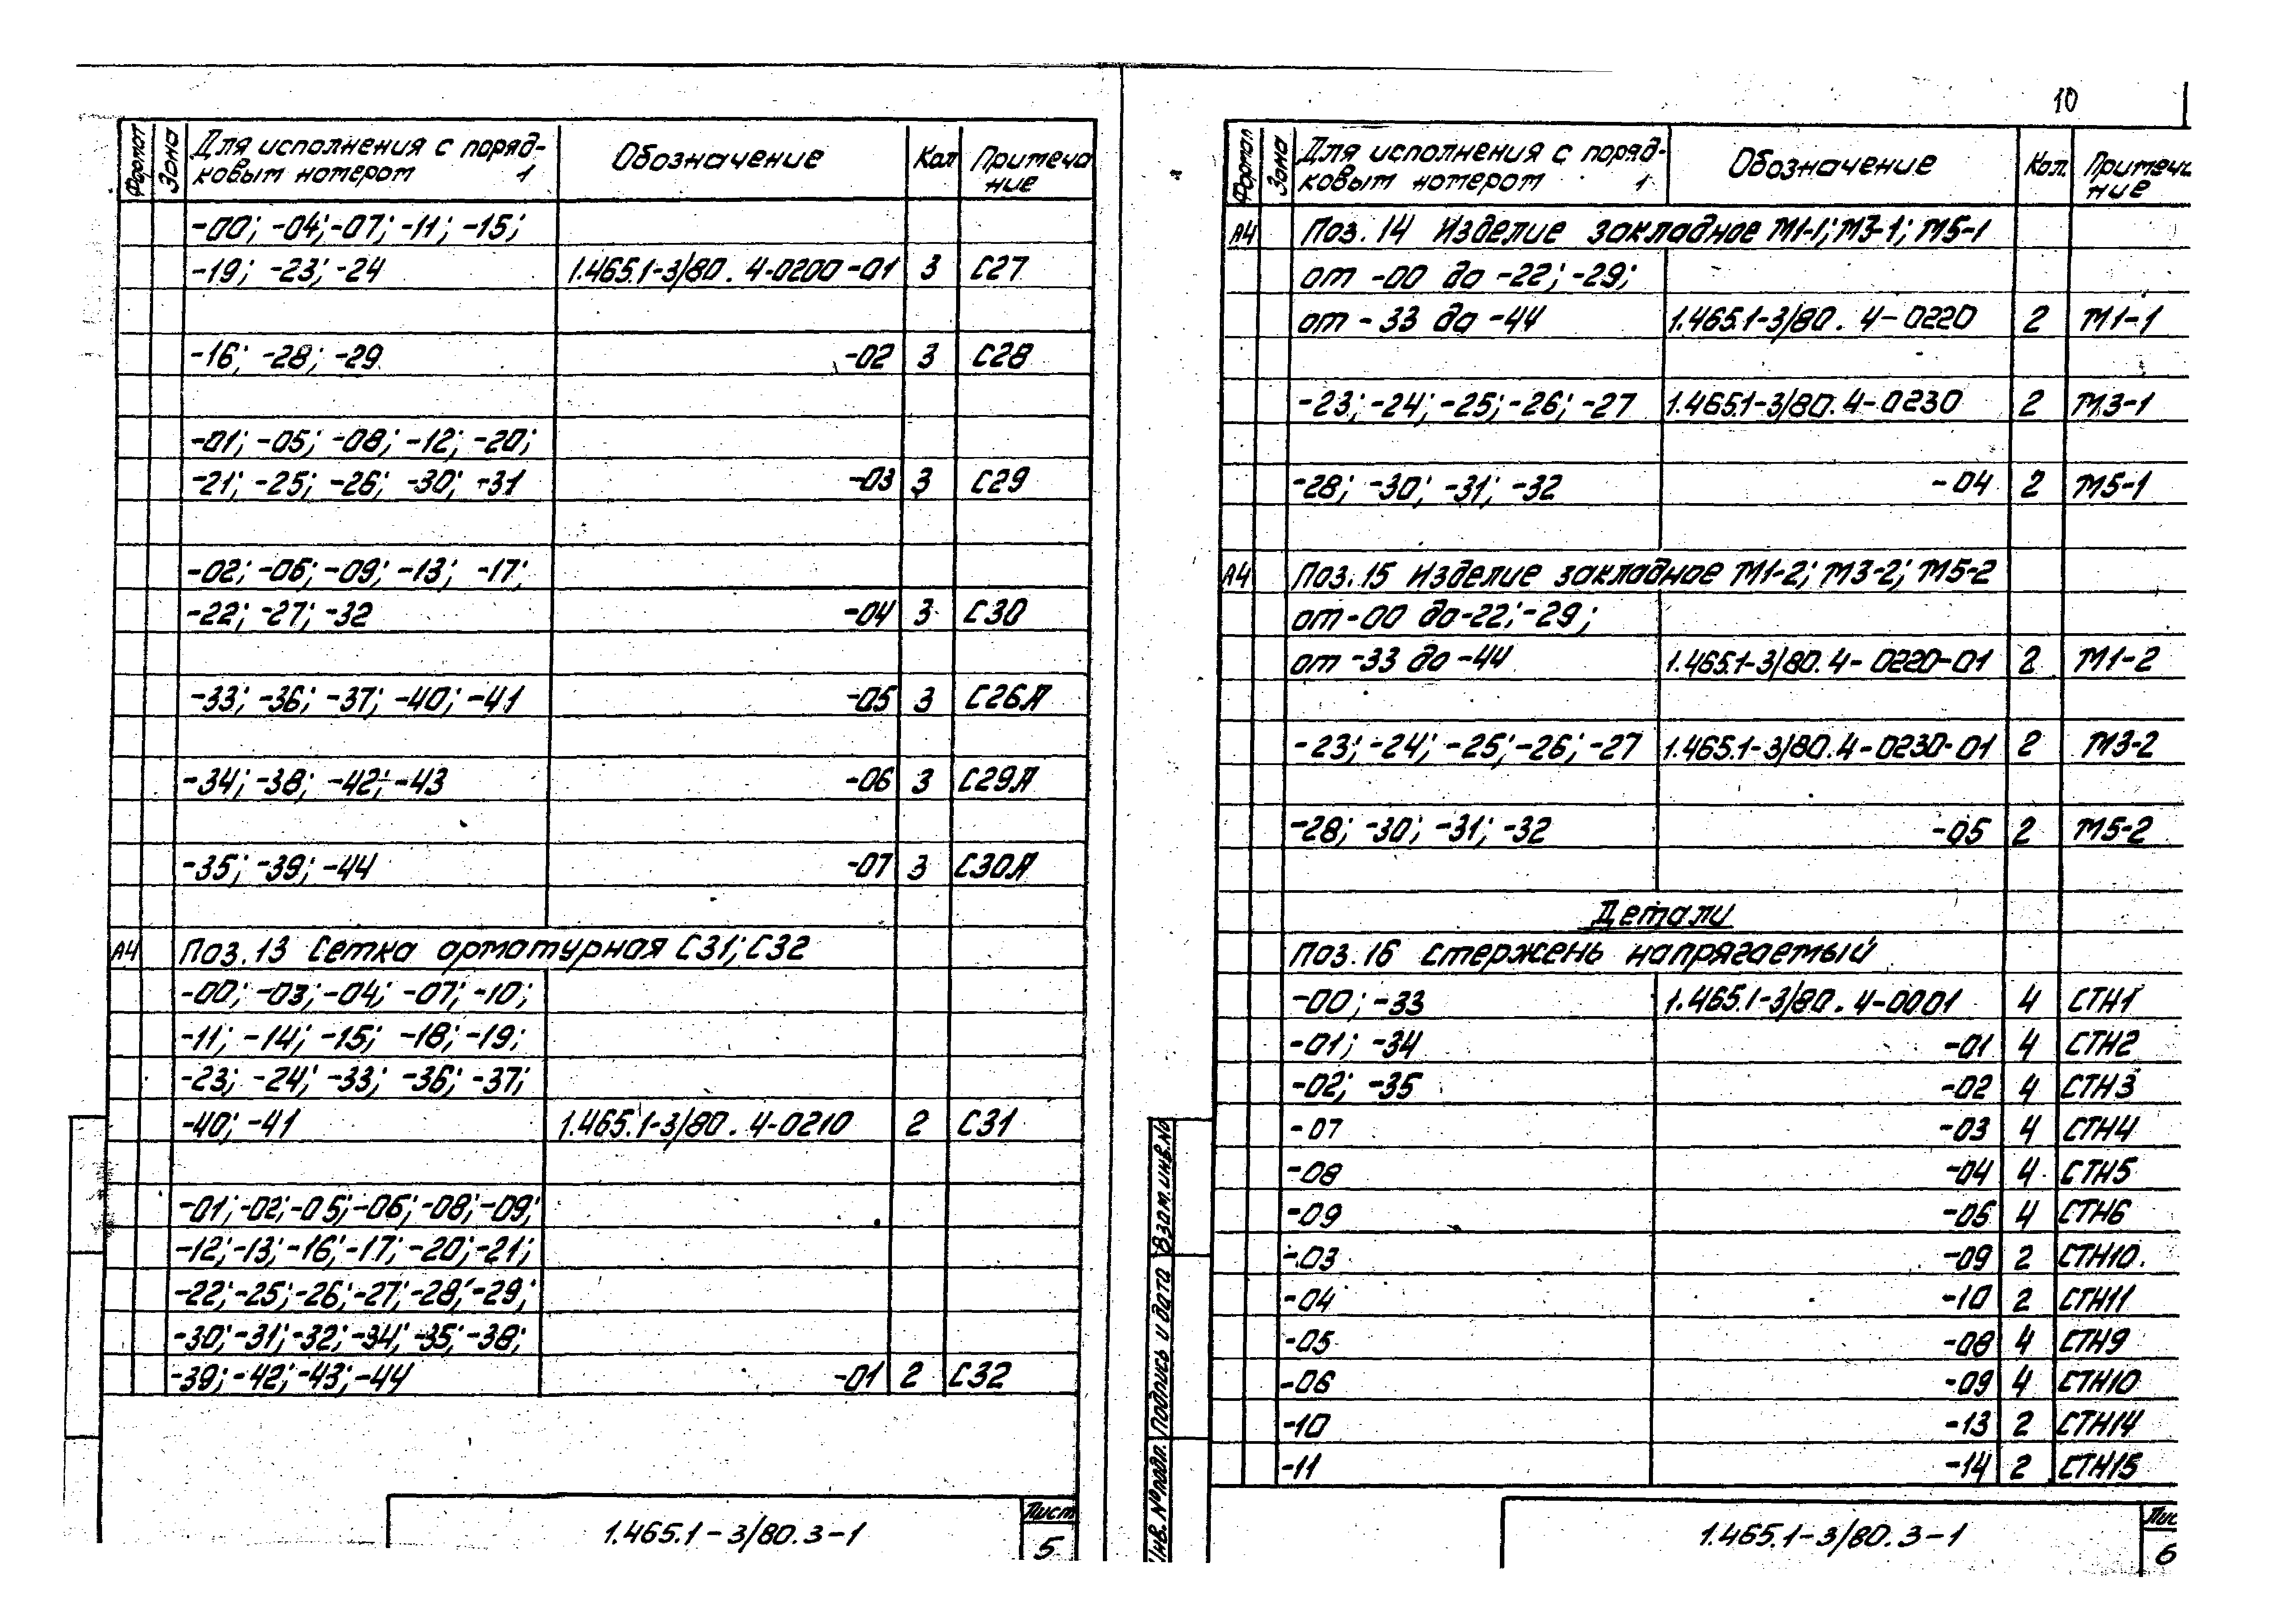 10
Формат Зона Для исполнения с поряд- Обозначение Кол Примеча
ковым номером 1 ние
-00; -04; -07; -11; -15;
-19; -23; -24 1.465.1-3/80. 4-0200-01 3 С27
-16; -28; -29 -02 3 С28
-01; -05; -08; -12; -20;
-21; -25; -26; -30; -31 -03 3 С29
-02; -06; -09; -13; -17;
-22; -27; -32 -04 3 С30
-33; -36; -37; -40; -41 -05 3 С26А
-34; -38; -42; -43 -06 3 С29А
-35; -39; -44 -07 3 С30А
А4 Поз. 13 Сетка арматурная С31; С32
-00; -03; -04; -07; -10;
-11; -14; -15; -18; -19;
-23; -24; -33; -36; -37;
-40; -41 1.465.1-3/80. 4-0210 2 С31
-01; -02; -05; -06; -08; -09;
-12; -13; -16; -17; -20; -21;
-22; -25; -26; -27; -28; -29;
-30; -31; -32; -34; -35; -38;
-39; -42; -43; -44 -01 2 С32
1.465.1-3/80.3-1 Лист
5
Формат Зона Для исполнения с поряд- Обозначение Кол. Примеча
ковым номером 1 ние
А4 Поз. 14 Изделие закладное М1-1; М3-1; М5-1
от -00 до -22; -29;
от -33 до -44 1.465.1-3/80. 4-0220 2 М1-1
-23; -24; -25; -26; -27 1.465.1-3/80. 4-0230 2 М3-1
-28; -30; -31; -32 -04 2 М5-1
А4 Поз. 15 Изделие закладное М1-2; М3-2; М5-2
от -00 до -22; -29;
от -33 до -44 1.465.1-3/80. 4-0220-01 2 М1-2
-23; -24; -25; -26; -27 1.465.1-3/80. 4-0230-01 2 М3-2
-28; -30; -31; -32 -05 2 М5-2
Детали
Поз. 16 Стержень напрягаемый
-00; -33 1.465.1-3/80. 4-0001 4 СТН1
-01; -34 -01 4 СТН2
-02; -35 -02 4 СТН3
-07 -03 4 СТН4
-08 -04 4 СТН5
-09 -05 4 СТН6
-03 -09 2 СТН10
-04 -10 2 СТН11
-05 -08 4 СТН9
-06 -09 4 СТН10
-10 -13 2 СТН14
-11 -14 2 СТН15
Инв. № подл. Подпись и дата Взам. инв. №
1.465.1-3/80.3-1 Лис
6